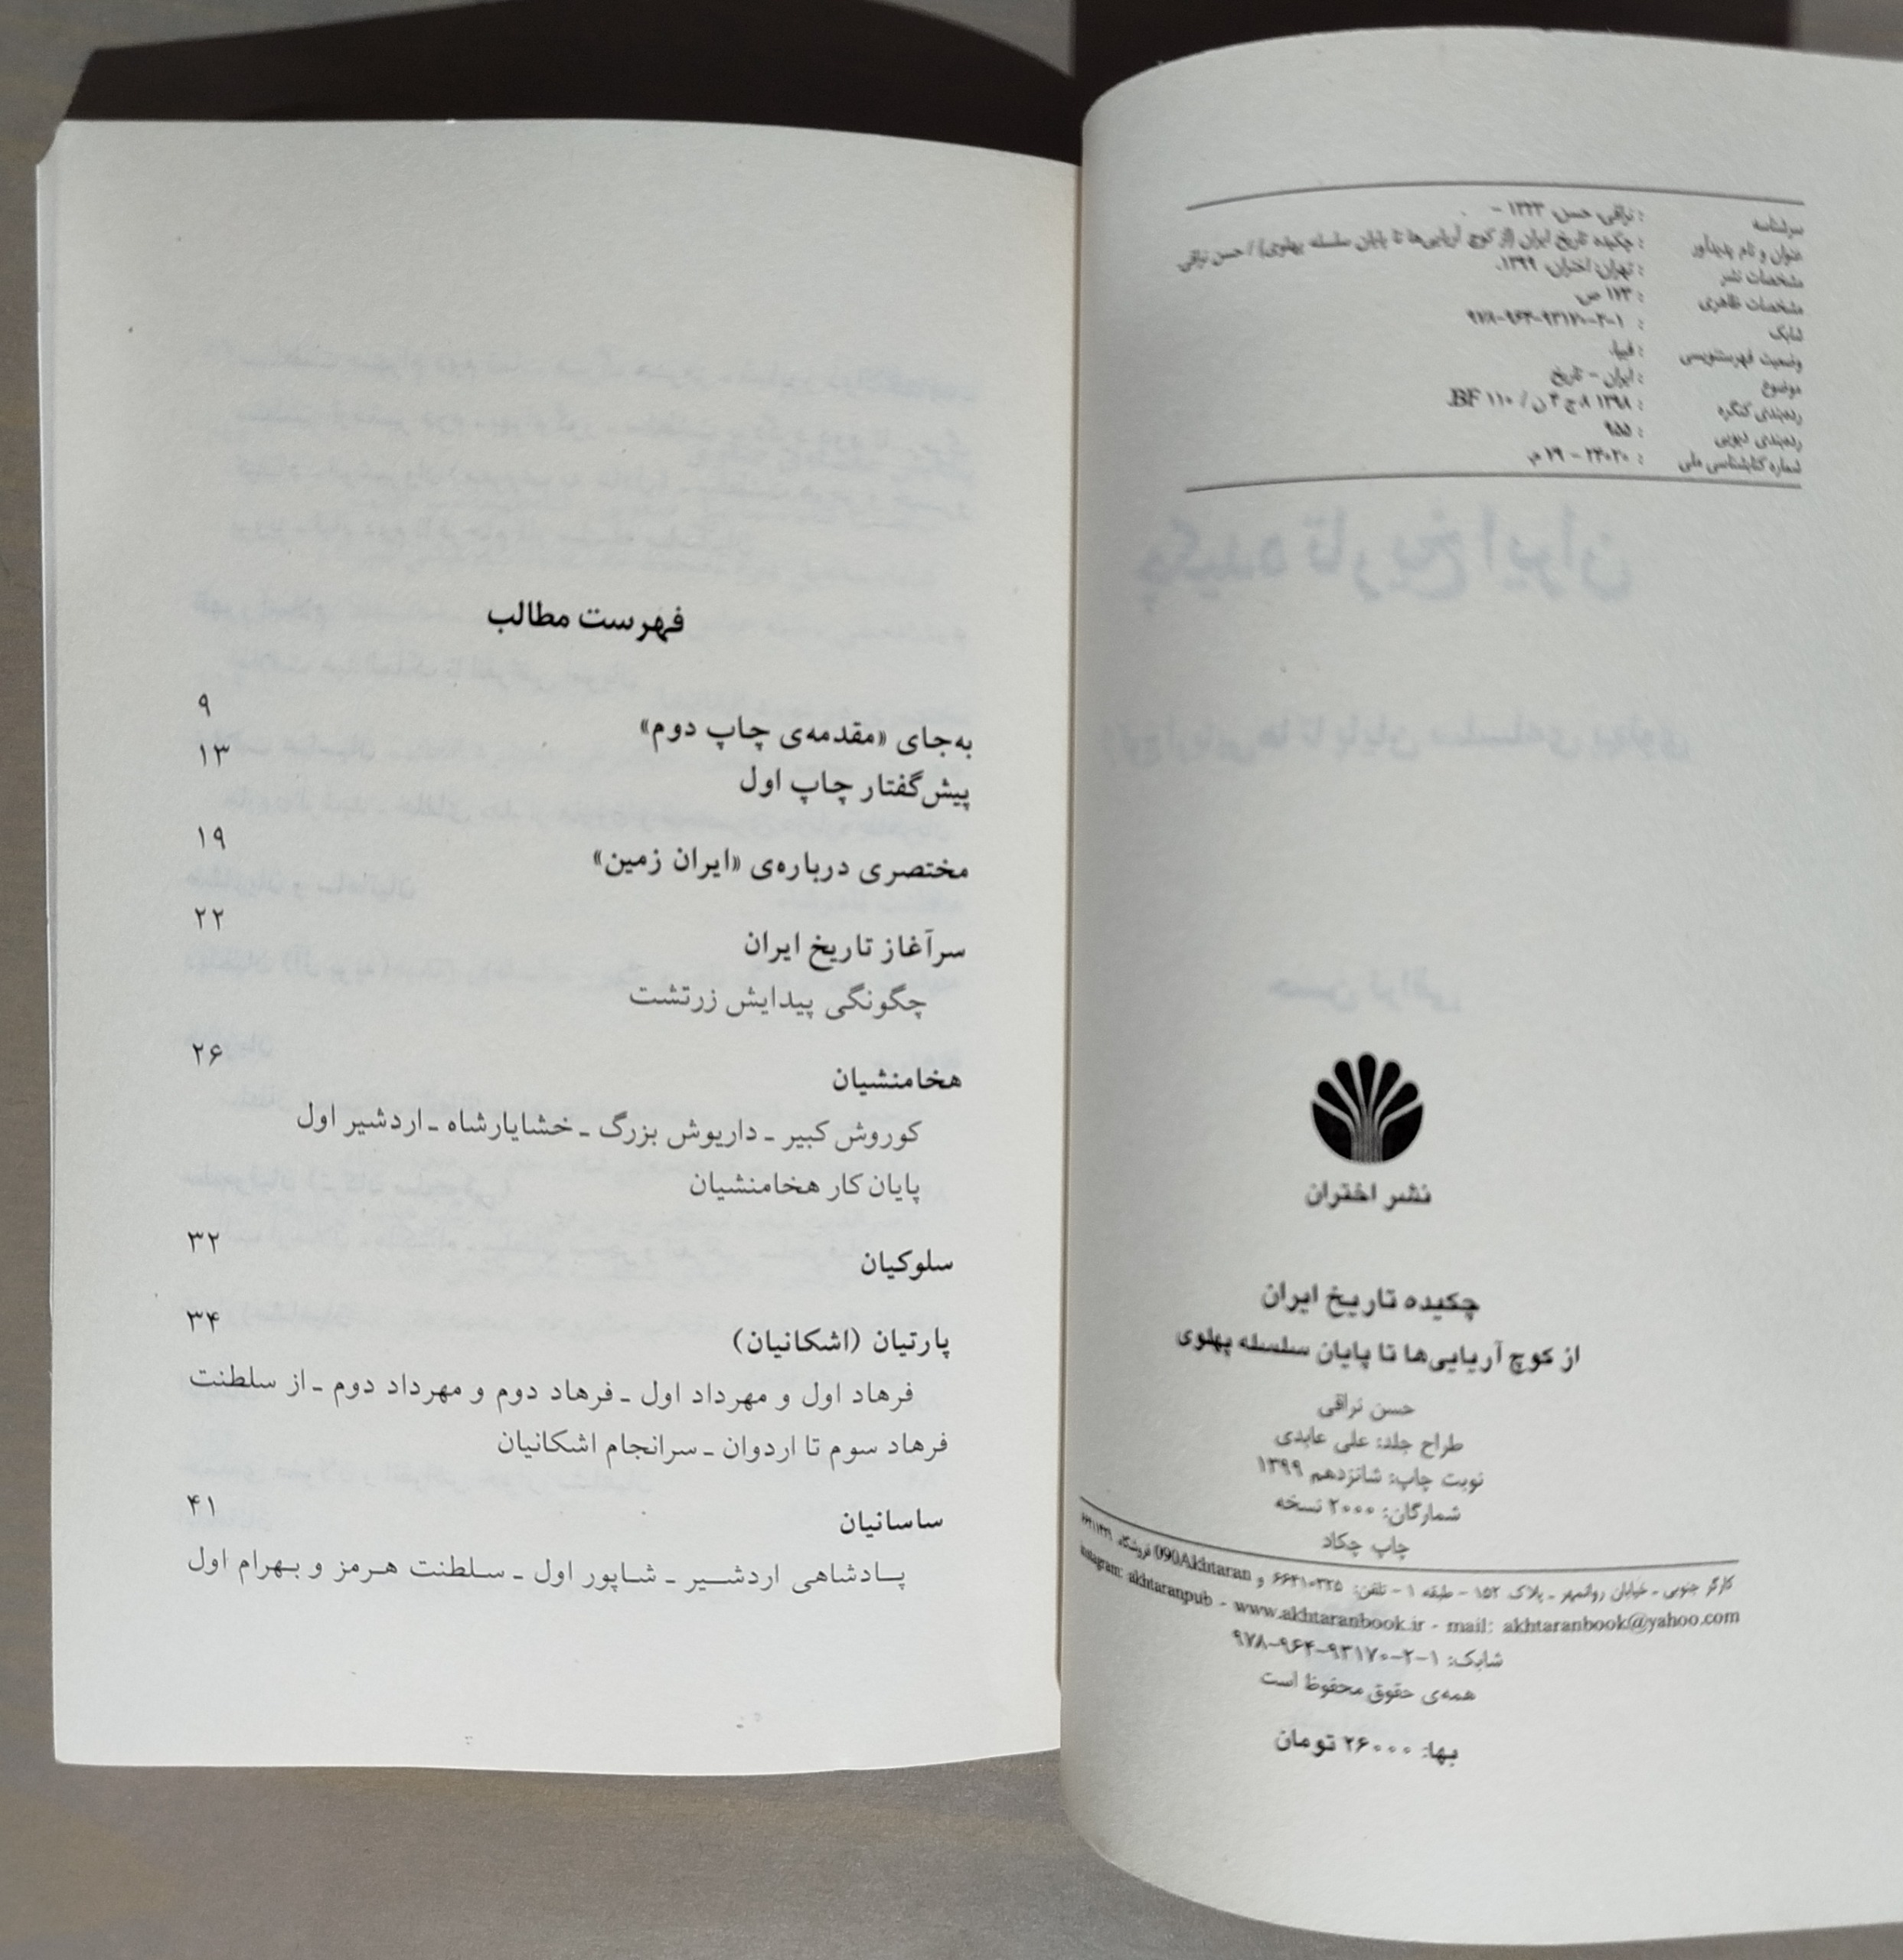 سرشناسه : نراقی، حسن، ۱۳۲۳ –
عنوان و نام پدیدآور : چکیده تاریخ ایران (از کوچ آریایی‌ها تا پایان سلسله پهلوی) / حسن نراقی
مشخصات نشر : تهران: اختران، ۱۳۹۹.
مشخصات ظاهری : ۱۷۳ ص.
شابک : ۹۷۸-۹۶۴-۹۳۱۷۰-۲-۱
وضعیت فهرستنویسی : فیپا.
موضوع : ایران – تاریخ
رده‌بندی کنگره : ۱۳۹۸ ۸ چ ۴ ن / BF ۱۱۰
رده‌بندی دیویی : ۹۵۵
شماره کتابشناسی ملی : ۲۴۰۲۰ – ۷۹ م
نشر اختران
چکیده تاریخ ایران
از کوچ آریایی‌ها تا پایان سلسله پهلوی
حسن نراقی
طراح جلد: علی عابدی
نوبت چاپ: شانزدهم ۱۳۹۹
شمارگان: ۲۰۰۰ نسخه
چاپ چکاد
کارگر جنوبی ـ خیابان روانمهر ـ پلاک ۱۵۲ – طبقه ۱ – تلفن: ۶۶۴۱۰۳۲۵ و 090Akhtaran فروشگاه
instagram: akhtaranpub - www.akhtaranbook.ir - mail: akhtaranbook@yahoo.com
شابک: ۱-۲-۹۳۱۷۰-۹۶۴-۹۷۸
همه‌ی حقوق محفوظ است
بها: ۲۶۰۰۰ تومان
فهرست مطالب
به‌جای «مقدمه‌ی چاپ دوم» ۹
پیش‌گفتار چاپ اول ۱۳
مختصری درباره‌ی «ایران زمین» ۱۹
سرآغاز تاریخ ایران ۲۲
چگونگی پیدایش زرتشت
هخامنشیان ۲۶
کوروش کبیر ـ داریوش بزرگ ـ خشایارشاه ـ اردشیر اول
پایان کار هخامنشیان
سلوکیان ۳۲
پارتیان (اشکانیان) ۳۴
فرهاد اول و مهرداد اول ـ فرهاد دوم و مهرداد دوم ـ از سلطنت
فرهاد سوم تا اردوان ـ سرانجام اشکانیان
ساسانیان ۴۱
پادشاهی اردشیر ـ شاپور اول ـ سلطنت هرمز و بهرام اول